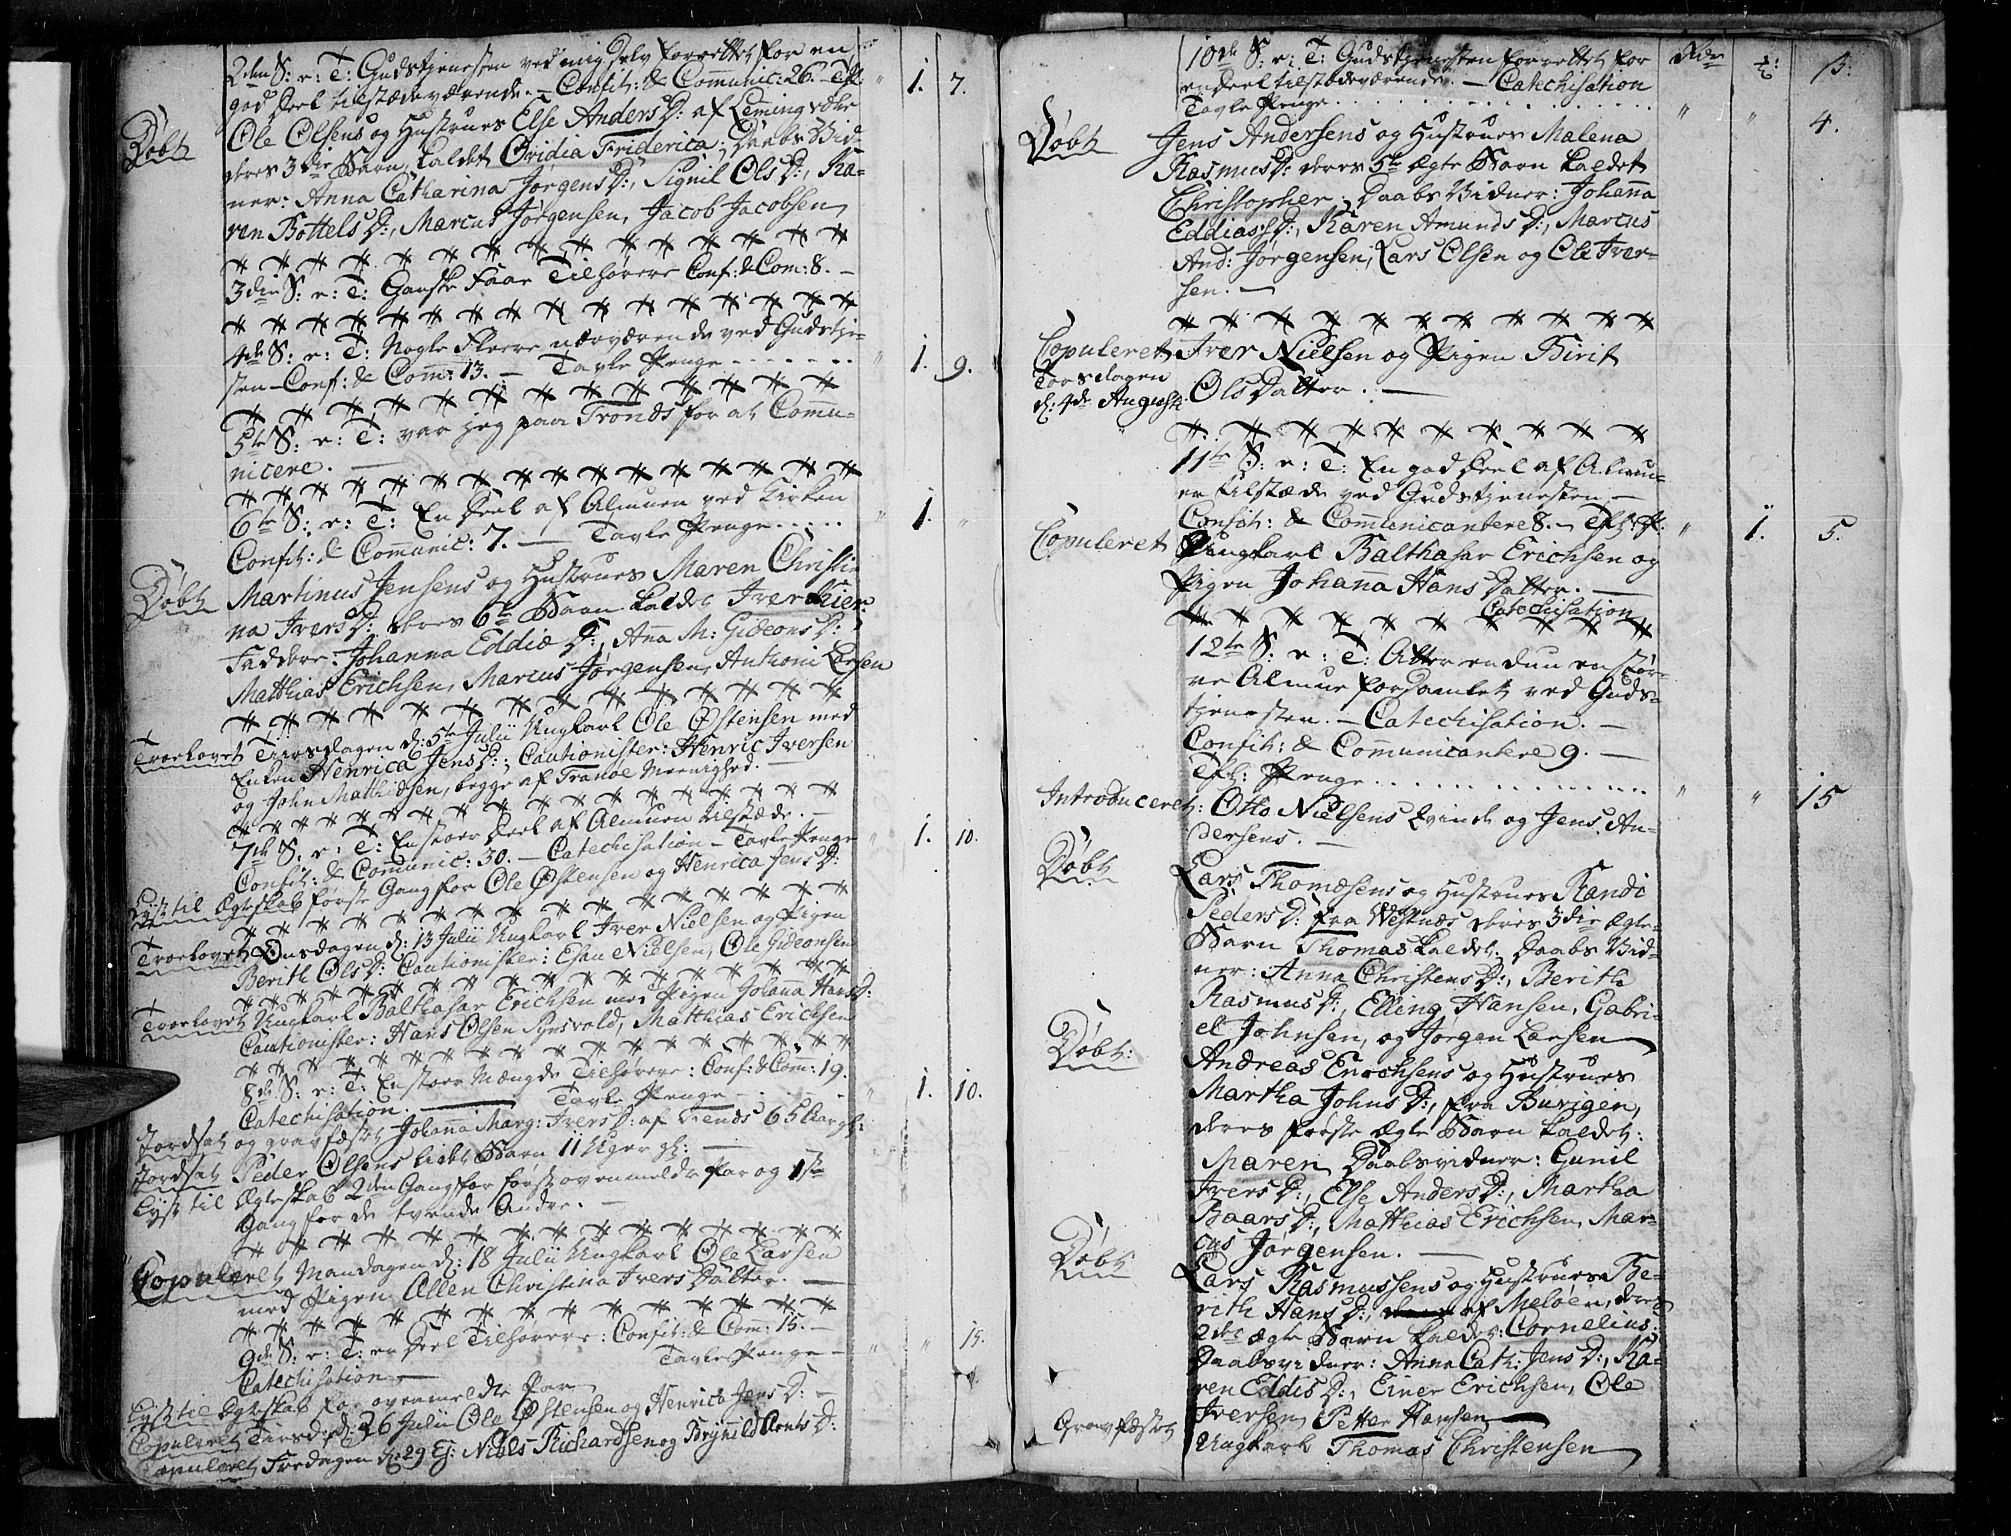 2den S: e: T: Gudstjenesten ved mig selv forrettet for en
god Deel tilstædeværende. — Confit: & Communic: 26. — Tfl. " 1. 7.
Døbt Ole Olsens og Hustrues Else Anders D: af Leming
deres 3die Barn, kaldet Ovidia Friderica; Daabs Vid-
ner: Anna Catharina Jørgens D:, Signil Ols D:, Ka-
ren Bottels D:, Marcus Jørgensen, Jacob Jacobsen
3die S: e: T: Ganske Faae Tilhørere Conf: & Com: 8. —
4de S: e: T: Nogle Fleere nærværende ved Gudstje-
sten — Conf: & Comm: 13. — Tavle Penge . . . . . . " 1. 9.
5te S: e: T: var jeg paa Tronds for at Commu-
nicere. —
6te S: e: T: En Deel af Almuen ved Kirken
Confit: & Communic: 7. — Tavle Penge . . . . . " 1. "
Døbt Martinus Jensens og Hustrues Maren Christi-
na Ivers D: deres 6te Barn kaldet Iver
Faddere: Johanna Eddiæ D:, Anna M: Gideons D:
Matthias Erichsen, Marcus Jørgensen, Anthoni Larsen
Troelovet Tiirsdagen d: 5te Julii Ungkarl Ole Østensen med
Enken Henrica Jens D:; Cautionister: Henric Iversen
og John Mathiesen, begge af Tranøe Meenighed. —
7de S: e: T: En stoer Deel af Almuen tilstæde. —
Confit: & Communic: 30. — Catechisation — Tavle Penge " 1. 10.
Lyst til Ægteskab første Gang for Ole Østensen og Henrica Jens D:
Troelovet Onsdagen d: 13 Julii Ungkarl Iver Nielsen og Pigen
Berith Ols D: Cautionister: Esau Nielsen, Ole Gideonsen
Troelovet Ungkarl Balthasar Erichsen med Pigen Johanna Hans D:
Cautionister: Hans Olsen Synsvold, Matthias Erichsen
8de S: e: T: En stoer Mængde Tilhørere: Conf: & Com: 19.
Catechisation. — Tavle Penge — . . . . . " 1. 10.
Jordsat og gravfæstet Johanna Marg: Ivers D: af 65 Aar gl:
Jordsat Peder Olsens lidet Barn 11 Uger gl: —
Lyst til Ægteskab 2den Gang for først ovenmeldte Par og 1ste
Gang for de tvende Andre. —
Copuleret Mandagen d: 18 Julii Ungkarl Ole Larsen
med Pigen Ellen Christina Ivers Datter. —
9de S: e: T: en Deel Tilhørere: Confit: & Com: 15. —
Tavle Penge — " " 15.
Catechisation —
Lyst til Ægteskab for ovenmeldte Par
Copuleret Tirsd: d: 26 Julii Ole Østensen og Henrica Jens D: —
Copuleret Fredagen d: 29 Ej: Niels Richardsen og Brynild Arents D:
10de S: e: T: Gudstjenesten forrettet for Rdr ß:
en deel tilstædeværende. — Catechisation
Tavle Penge . . . . . . . . . . . . " " 4.
Døbt Jens Andersens og Hustrues Malena
Rasmus D: deres 5te ægte Barn kaldet
Christopher; Daabs Vidner: Johanna
Eddias D:, Karen Amunds D:, Marcus
And: Jørgensen, Lars Olsen og Ole Iver-
sen. —
Copuleret Iver Nielsen og Pigen Birit
Torsdagen
d: 4de August Ols Datter. —
11te S: e: T: En god Deel af Almu-
en tilstæde ved Gudstjenesten —
Confit: & Communicantere 8. — Tfl: P: " 1. 5.
Copuleret Ungkarl Balthasar Erichsen og
Pigen Johanna Hans Datter. —
Catechisation
12te S: e: T: Atter endnu en stør-
re Almue forsamlet ved Guds-
tjenesten. — Catechisation. —
Confit: & Communicantere 9. —
Tfl: Penge . . . . . . . . . . . . " " 15
Introduceret: Otto Nielsens Qvinde og Jens An-
dersens. —
Døbt Lars Thomæsens og Hustrues Randi
Peders D: fra Westnæs deres 3die ægte
Barn Thomas kaldet; Daabs Vid-
ner: Anna Christens D:, Berith
Rasmus D:, Elling Hansen, Gabri-
el Johnsen, og Jørgen Larsen
Døbt: Andreas Enochsens og Hustrues
Martha Johns D:, fra Burigen,
deres første ægte Barn kaldet:
Maren Daabsvidner: Gunil
Ivers D:, Else Anders D:, Martha
Baars D:, Matthias Erichsen, Mar-
cus Jørgensen. —
Døbt Lars Rasmussens og Hustrues Be-
rith Hans D:, af Meløen, deres
2det ægte Barn kaldet: Cornelius:
Daabsvidner: Anna Cath: Jens D:, Ka-
ren Eddis D:, Einer Erichsen, Ole
Iversen, Petter Hansen —
Gravfæstet Ungkarl Thomas Christensen